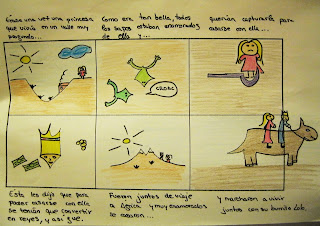 Érase una vez una princesa
que vivía en un valle muy
profundo...
Como era tan bella, todos
los sapos estaban enamorados
de ella y...
querían capturarla para
casarse con ella...
CROAC
Esta les dijo que para
poder casarse con ella
se tenían que convertir
en reyes, y así fue.
Fueron juntos de viaje
a África y muy enamorados
se casaron...
Y marcharon a vivir
juntos con su burrito Lolo.